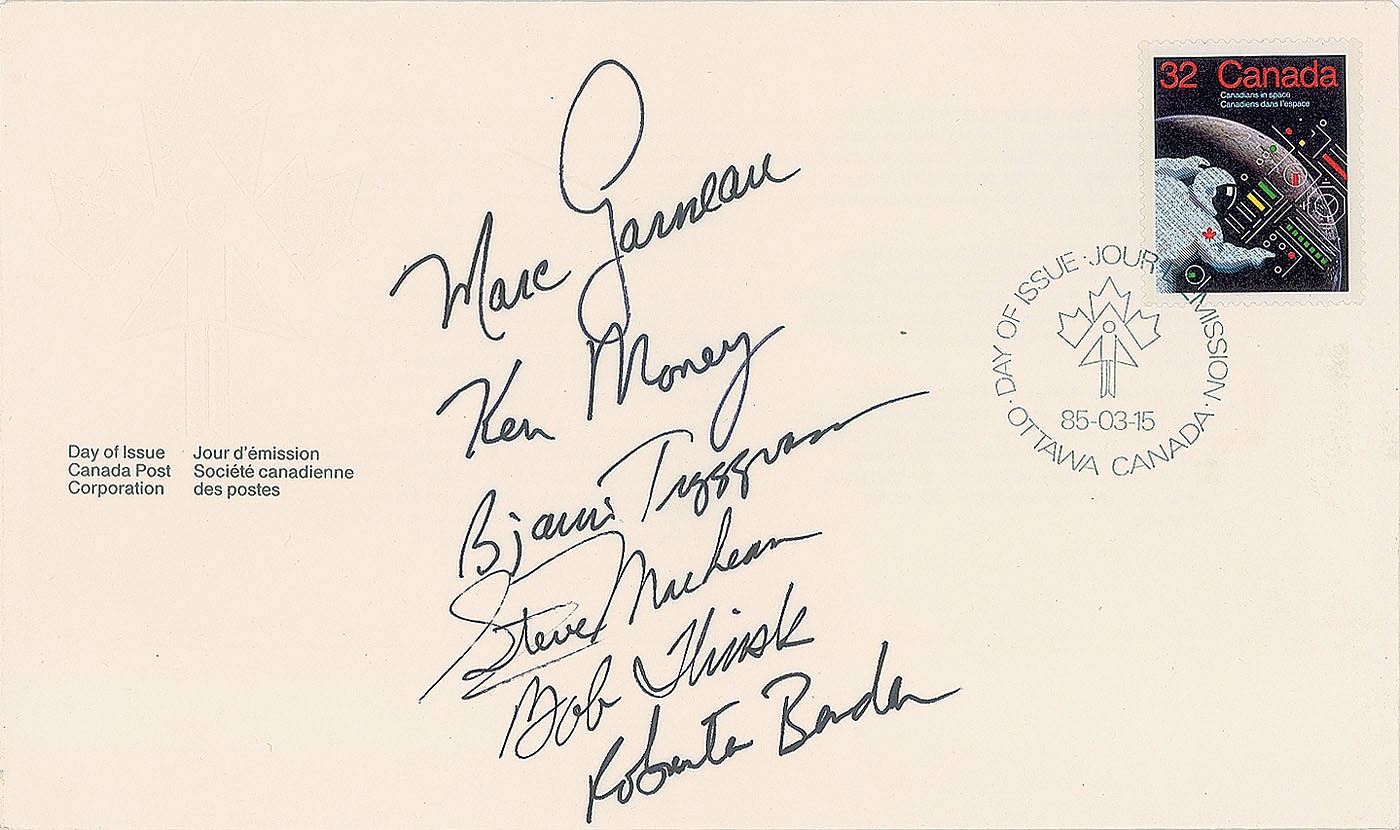 32 Canada
Canadians in space
Canadiens dans l'espace
Marc Garneau
Ken Money
Bjarni Tryggvason
Steve MacLean
Bob Thirsk
Roberta Bondar
DAY OF ISSUE · JOUR D'ÉMISSION ·
85-03-15
OTTAWA CANADA ·
Day of Issue Jour d'émission
Canada Post Société canadienne
Corporation des postes